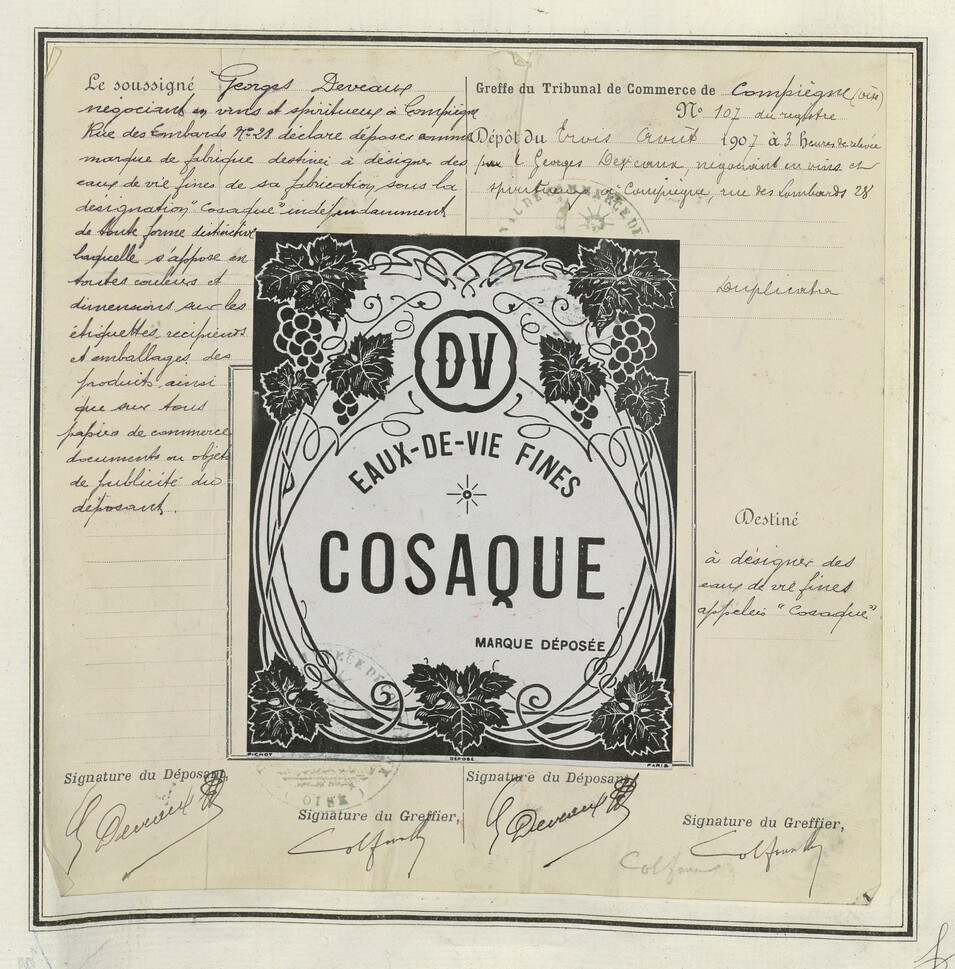 Le soussigné Georges Deveaux
négociant en vins et spiritueux à Compiègne
Rue des Lombards N° 28 déclare déposer comme
marque de fabrique destinée à désigner des
eaux de vie fines de sa fabrication, sous la
désignation "Cosaque" indépendamment
de toute forme distinctive
laquelle s'appose en
toutes couleurs et
dimensions sur les
étiquettes, récipients
et emballages des
produits ainsi
que sur tous
papiers de commerce
documents ou objets
de publicité du
déposant.
Greffe du Tribunal de Commerce de Compiègne (Oise)
N° 107 du registre
Dépôt du trois Août 1907 à 3 heures de relevée
par Georges Deveaux, négociant en vins et
spiritueux à Compiègne, rue des Lombards 28
Duplicata
DV
EAUX-DE-VIE FINES
COSAQUE
MARQUE DÉPOSÉE
PICHOT DÉPOSÉ PARIS
Destiné
à désigner des
eaux de vie fines
appelées "Cosaque"
Signature du Déposant,
G Deveaux
Signature du Greffier,
Signature du Déposant,
G Deveaux
Signature du Greffier,